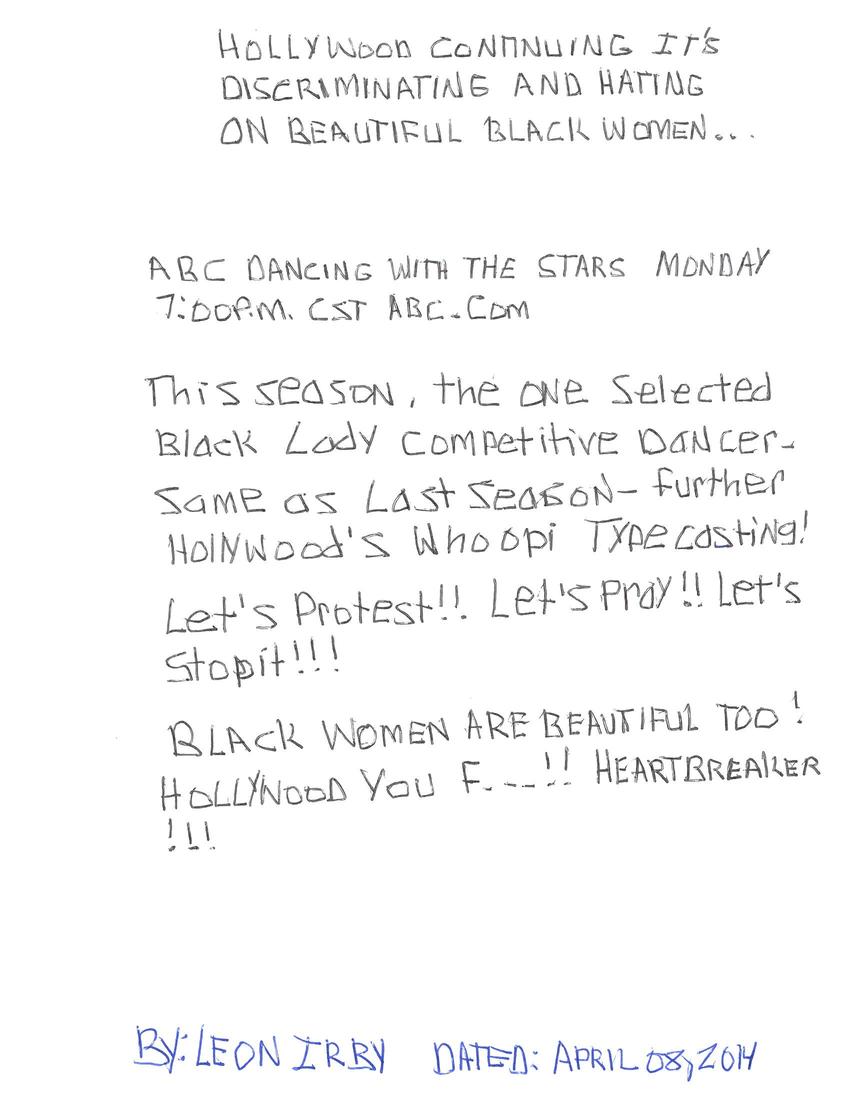 HOLLYWOOD CONTINUING IT'S
DISCRIMINATING AND HATING
ON BEAUTIFUL BLACK WOMEN...
ABC DANCING WITH THE STARS MONDAY
7:00P.M. CST ABC.COM
This season, the one selected
Black Lady competitive Dancer-
same as Last Season- further
Hollywood's Whoopi Typecasting!
Let's Protest!! Let's pray!! Let's
Stop it!!!
BLACK WOMEN ARE BEAUTIFUL TOO!
HOLLYWOOD YOU F.---!! HEARTBREAKER
!!!
BY: LEON IRBY DATED: APRIL 08, 2014